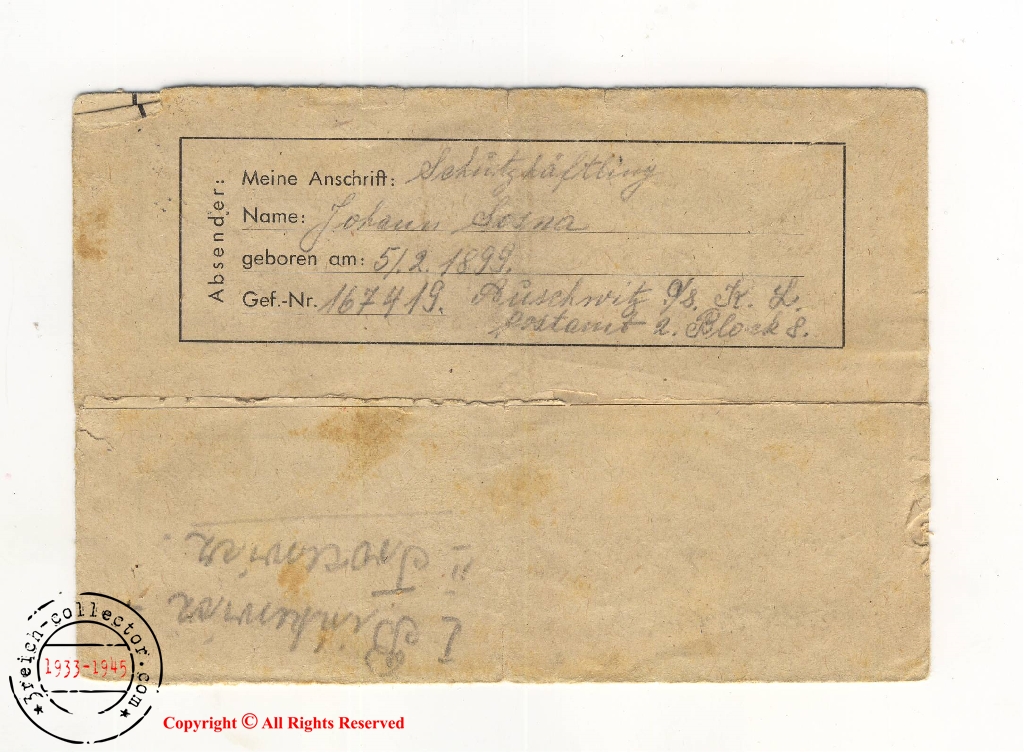 Absender:
Meine Anschrift: Schutzhäftling
Name: Johann Sosna
geboren am: 5/2. 1899.
Gef.-Nr. 167419. Auschwitz O/S. K. L.
Postamt 2. Block 8.
3reich-collector.com
1933-1945
Copyright © All Rights Reserved